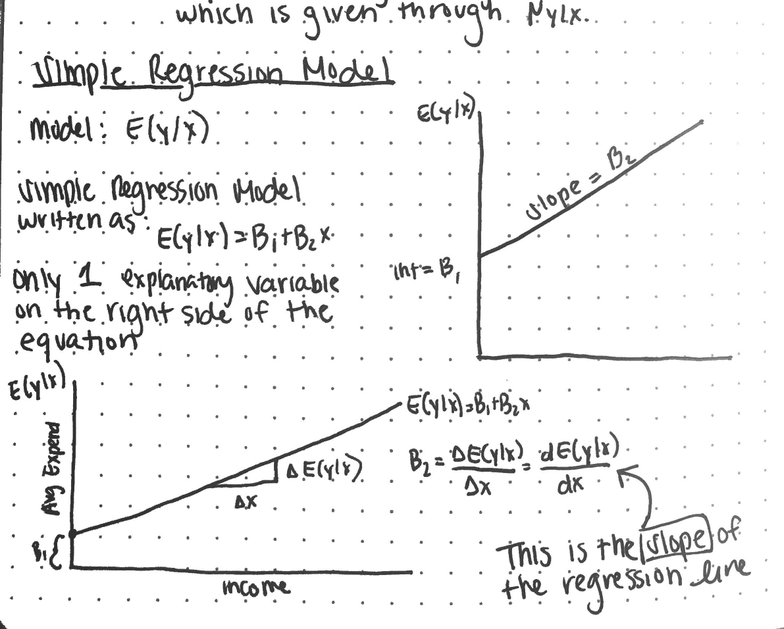 which is given through μy|x.
Simple Regression Model
model: E(y/x)
Simple Regression Model
written as: E(y|x)=B₁+B₂x
only 1 explanatory variable
on the right side of the
equation
E(y|x)
slope = B₂
int = B₁
E(y|x)
Avg Expend
B₁{
income
Δx
ΔE(y|x)
E(y|x)=B₁+B₂x
B₂ = ΔE(y|x)/Δx = dE(y|x)/dx
This is the slope of
the regression line